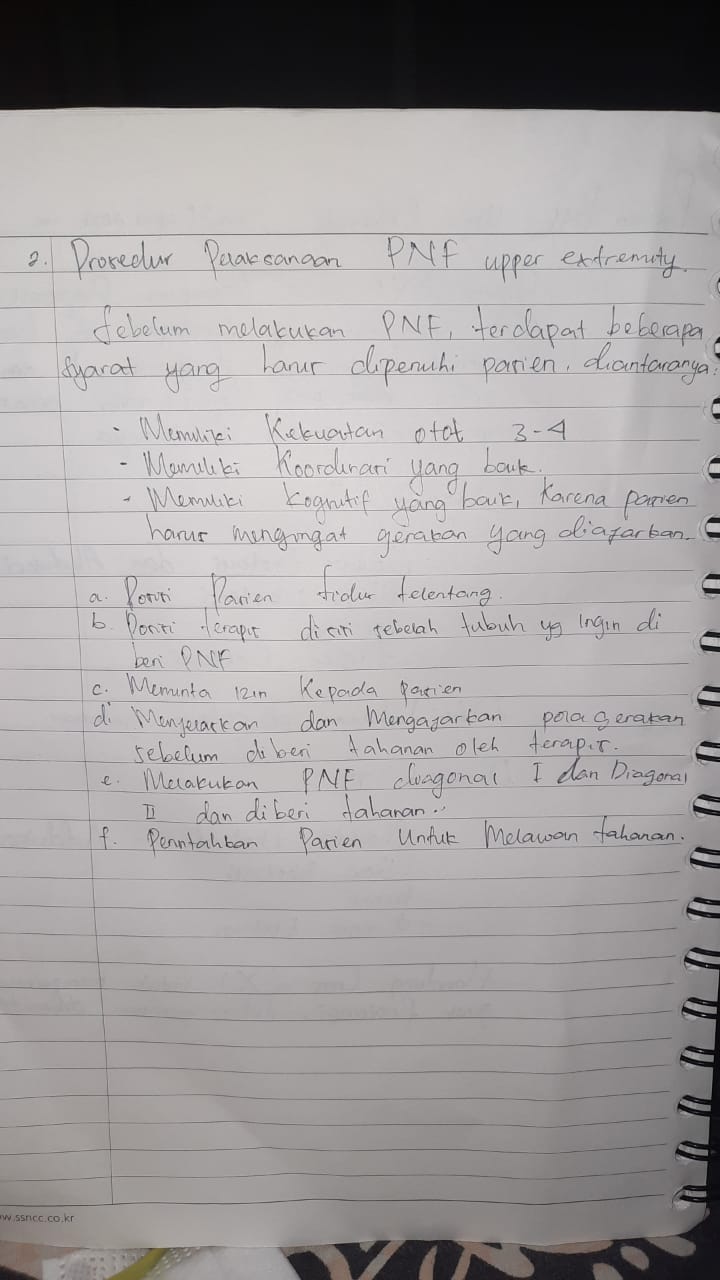 2. Prosedur Pelaksanaan PNF upper extremity.
Sebelum melakukan PNF, terdapat beberapa
syarat yang harus dipenuhi pasien, diantaranya:
- Memiliki Kekuatan otot 3-4
- Memiliki Koordinasi yang baik.
- Memiliki kognitif yang baik, Karena pasien
harus mengingat gerakan yang diajarkan.
a. Posisi Pasien tidur telentang.
b. Posisi terapis di sisi sebelah tubuh yg Ingin di
beri PNF
c. Meminta izin Kepada Pasien
d. Menjelaskan dan Mengajarkan pola gerakan
sebelum diberi tahanan oleh terapis.
e. Melakukan PNF diagonal I dan Diagonal
II dan diberi tahanan..
f. Perintahkan Pasien Untuk Melawan tahanan.
w.ssncc.co.kr